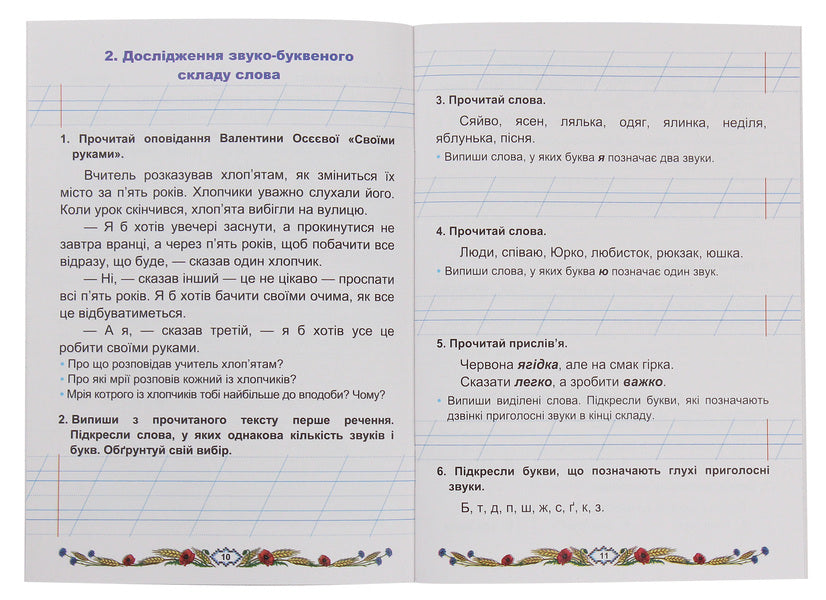 2. Дослідження звуко-буквеного
складу слова
1. Прочитай оповідання Валентини Осєєвої «Своїми
руками».
Вчитель розказував хлоп'ятам, як зміниться їх
місто за п'ять років. Хлопчики уважно слухали його.
Коли урок скінчився, хлоп'ята вибігли на вулицю.
— Я б хотів увечері заснути, а прокинутися не
завтра вранці, а через п'ять років, щоб побачити все
відразу, що буде, — сказав один хлопчик.
— Ні, — сказав інший — це не цікаво — проспати
всі п'ять років. Я б хотів бачити своїми очима, як все
це відбуватиметься.
— А я, — сказав третій, — я б хотів усе це
робити своїми руками.
• Про що розповідав учитель хлоп'ятам?
• Про які мрії розповів кожний із хлопчиків?
• Мрія котрого із хлопчиків тобі найбільше до вподоби? Чому?
2. Випиши з прочитаного тексту перше речення.
Підкресли слова, у яких однакова кількість звуків і
букв. Обґрунтуй свій вибір.
10
3. Прочитай слова.
Сяйво, ясен, лялька, одяг, ялинка, неділя,
яблунька, пісня.
• Випиши слова, у яких буква я позначає два звуки.
4. Прочитай слова.
Люди, співаю, Юрко, любисток, рюкзак, юшка.
• Випиши слова, у яких буква ю позначає один звук.
5. Прочитай прислів'я.
Червона ягідка, але на смак гірка.
Сказати легко, а зробити важко.
• Випиши виділені слова. Підкресли букви, які позначають
дзвінкі приголосні звуки в кінці складу.
6. Підкресли букви, що позначають глухі приголосні
звуки.
Б, т, д, п, ш, ж, с, ґ, к, з.
11